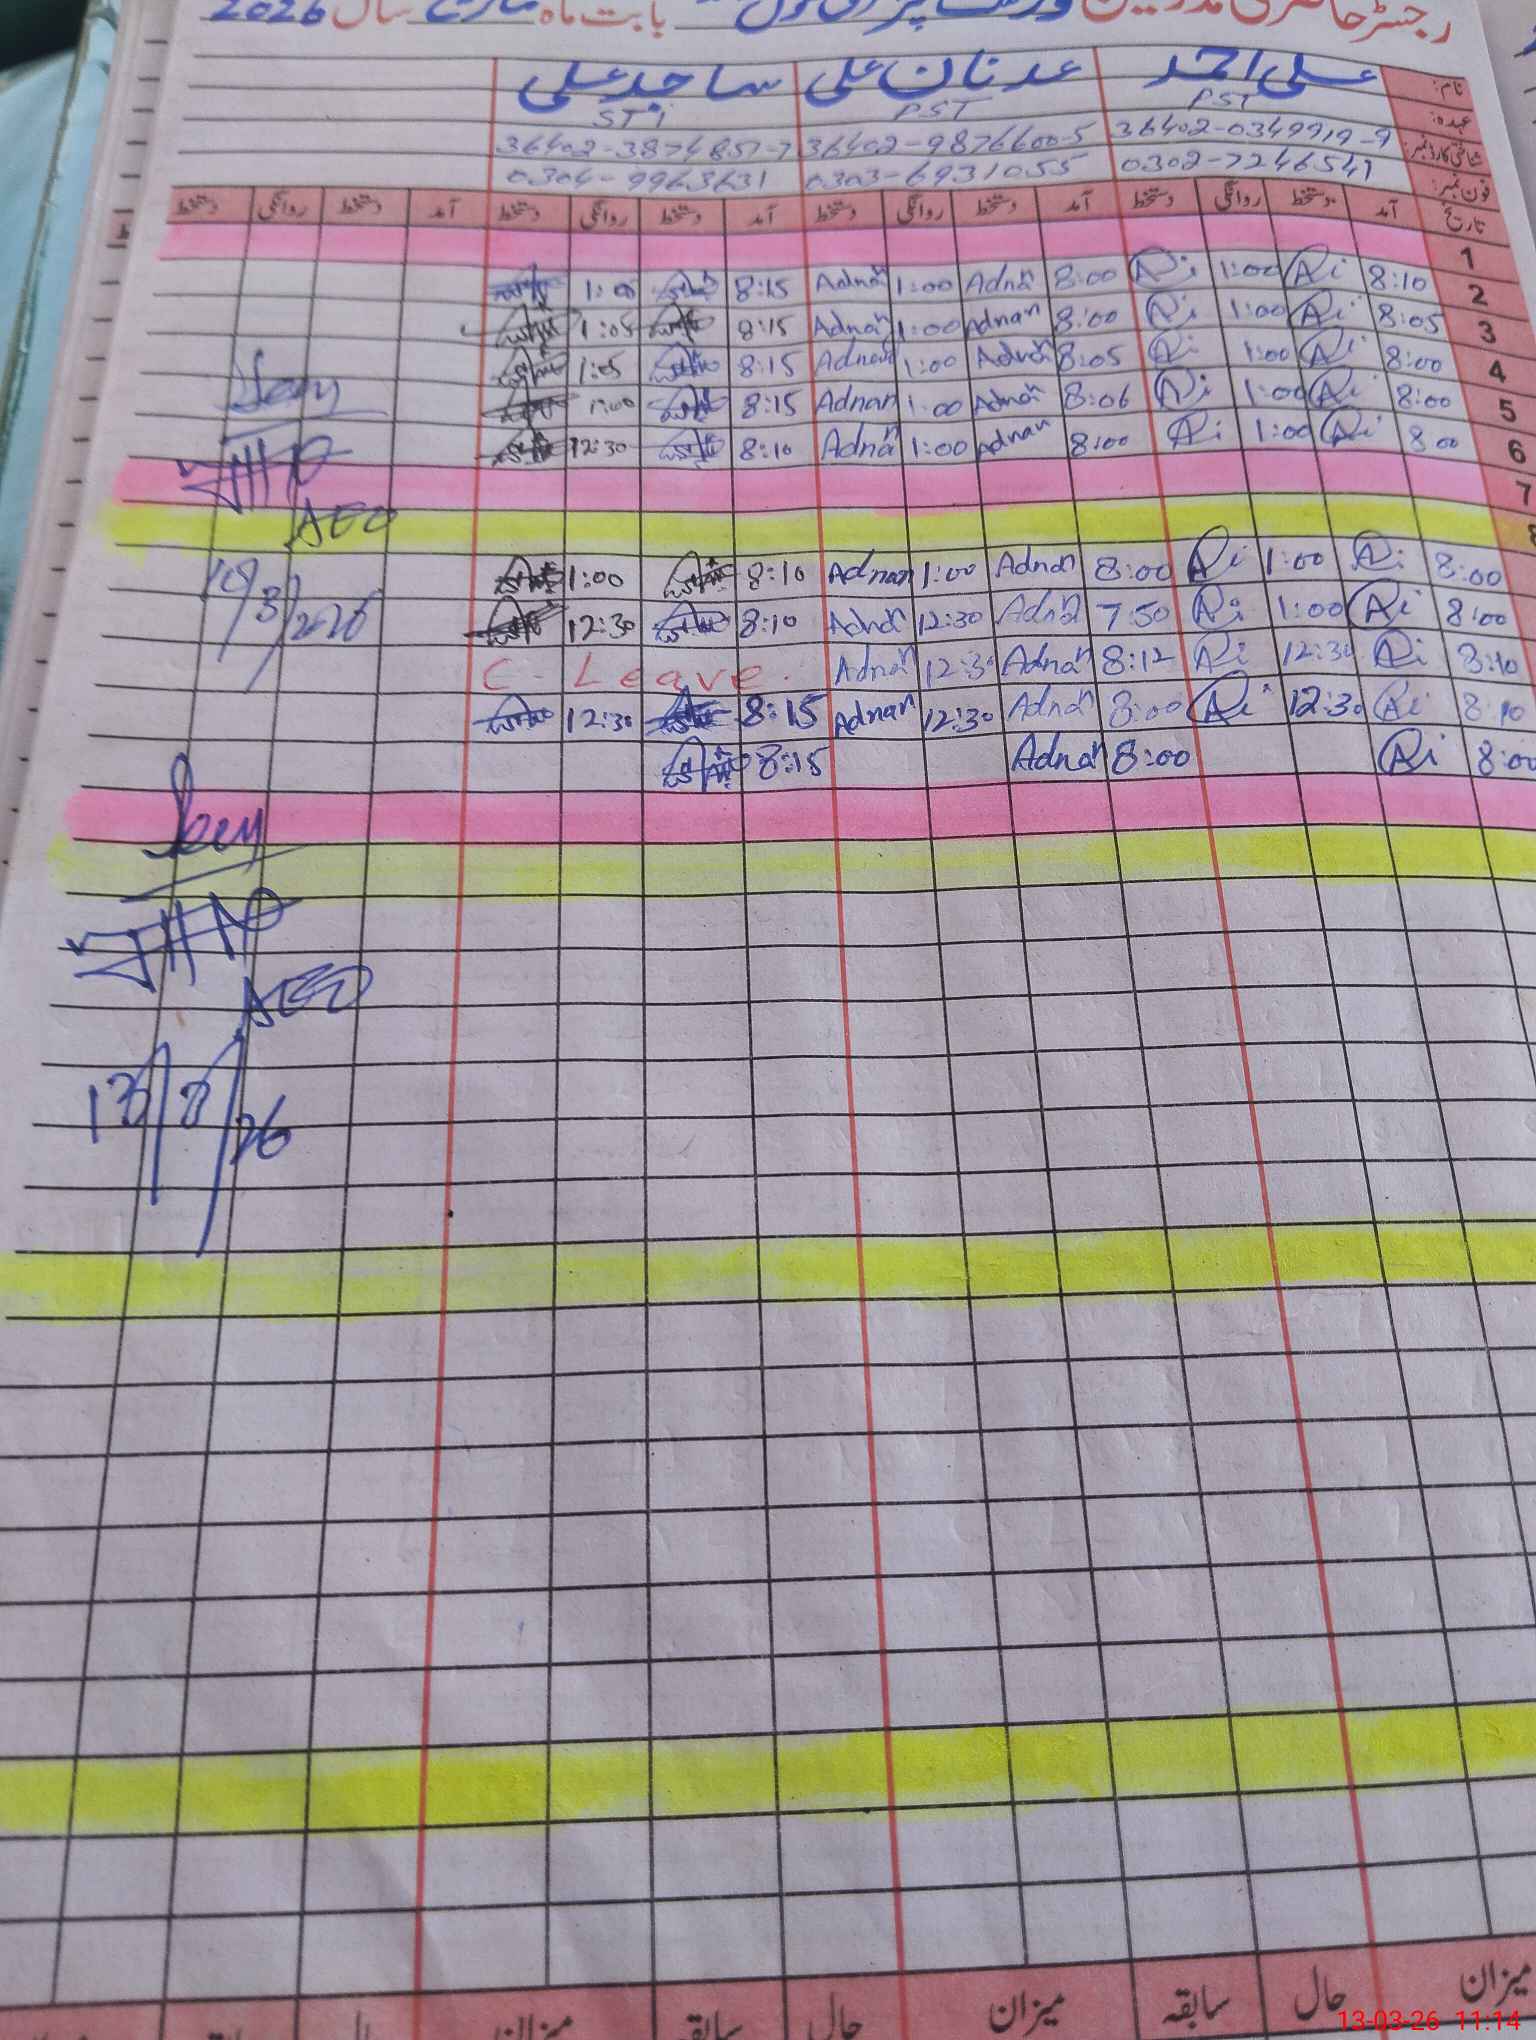 رجسٹر حاضری مدرسین بابت ماہ مارچ سال 2026
نام: علی احمد عدنان علی ساجد علی
عہدہ: PST PST STi
شناختی کارڈ نمبر: 36402-0349919-9 36402-9876600-5 36402-3874857-7
فون نمبر: 0302-7246541 0303-6931055 0304-9963631
تاریخ آمد دستخط روانگی دستخط آمد دستخط روانگی دستخط آمد دستخط روانگی دستخط آمد دستخط روانگی دستخط
1
2 8:10 Ali 1:00 Ali 8:00 Adnan 1:00 Adnan 8:15 1:00
3 8:05 Ali 1:00 Ali 8:00 Adnan 1:00 Adnan 8:15 1:05
4 8:00 Ali 1:00 Ali 8:05 Adnan 1:00 Adnan 8:15 1:05
5 8:00 Ali 1:00 Ali 8:06 Adnan 1:00 Adnan 8:15 1:00
6 8:00 Ali 1:00 Ali 8:00 Adnan 1:00 Adnan 8:10 12:30
7
8
AEO
8:00 Ali 1:00 Ali 8:00 Adnan 1:00 Adnan 8:10 1:00
8:00 Ali 1:00 Ali 7:50 Adnan 12:30 Adnan 8:10 12:30
10/3/2026
8:10 Ali 12:30 Ali 8:12 Adnan 12:30 Adnan C-Leave.
8:10 Ali 12:30 Ali 8:00 Adnan 12:30 Adnan 8:15 12:30
8:00 Ali 8:00 Adnan 8:15
AEO
13/3/26
میزان حال سابقہ میزان حال سابقہ میزان
13-03-26 11:14